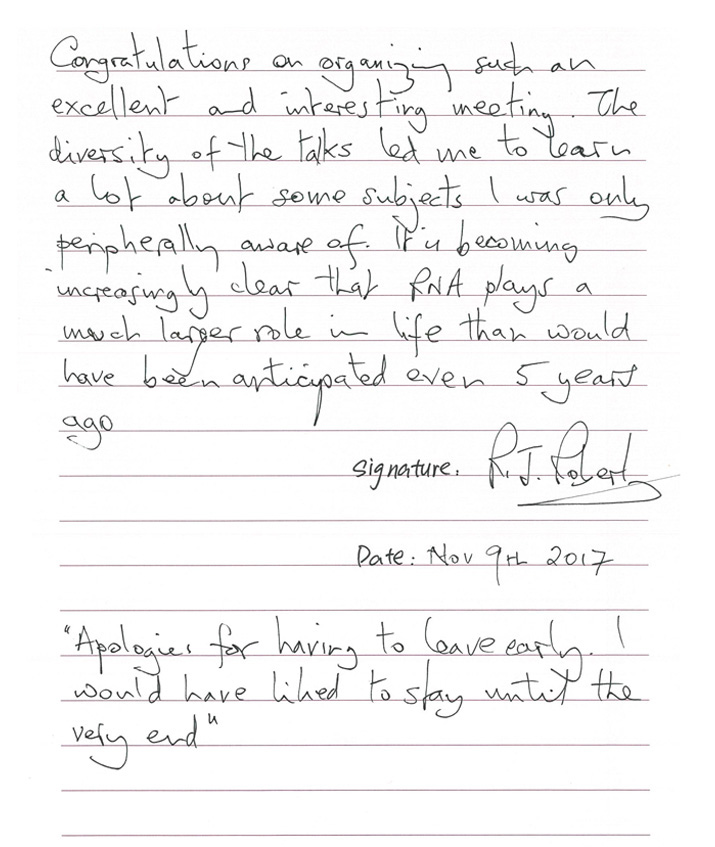 Congratulations on organizing such an
excellent and interesting meeting. The
diversity of the talks led me to learn
a lot about some subjects I was only
peripherally aware of. It is becoming
increasingly clear that RNA plays a
much larger role in life than would
have been anticipated even 5 years
ago
Signature. R.J. Robert
Date: Nov 9TH 2017
"Apologies for having to leave early. I
would have liked to stay until the
very end"